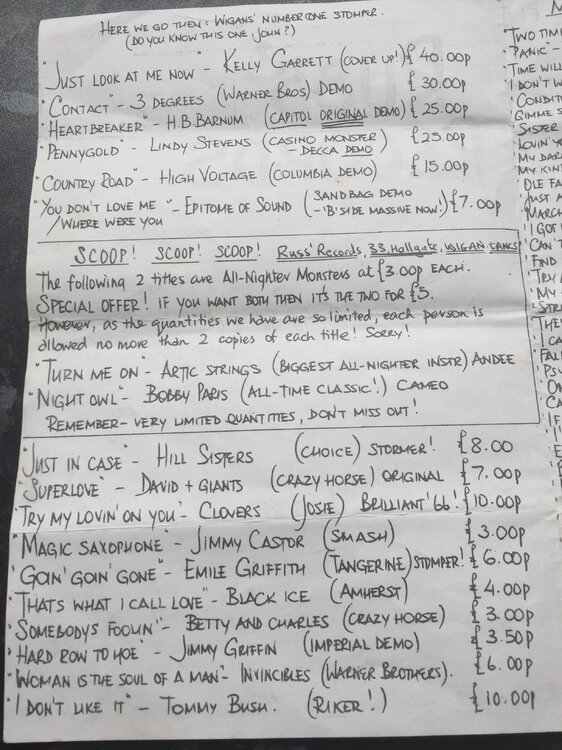 HERE WE GO THEN: WIGANS' NUMBER ONE STOMPER.
(DO YOU KNOW THIS ONE, JOHN?)
"JUST LOOK AT ME NOW" - KELLY GARRETT (COVER UP!) £ 40.00p
"CONTACT" - 3 DEGREES (WARNER BROS) DEMO £ 30.00p
"HEARTBREAKER" - H.B. BARNUM (CAPITOL ORIGINAL DEMO) £ 25.00p
"PENNYGOLD" - LINDY STEVENS (CASINO MONSTER - DECCA DEMO) £25.00p
"COUNTRY ROAD" - HIGH VOLTAGE (COLUMBIA DEMO) £ 15.00p
"YOU DON'T LOVE ME" - EPITOME OF SOUND (SANDBAG DEMO £7.00p
/WHERE WERE YOU - 'B' SIDE MASSIVE NOW!)
SCOOP! SCOOP! SCOOP! RUSS' RECORDS, 33, Hallgate, WIGAN LANCS
The following 2 titles are All-Nighter Monsters at £3.00p EACH.
SPECIAL OFFER! IF YOU WANT BOTH THEN IT'S THE TWO FOR £5.
However, as the quantities we have are so limited, each person is
allowed no more than 2 copies of each title! Sorry!
"TURN ME ON" - ARTIC STRINGS (BIGGEST ALL-NIGHTER INSTR) ANDEE
"NIGHT OWL" - BOBBY PARIS (ALL-TIME CLASSIC!) CAMEO
REMEMBER - VERY LIMITED QUANTITIES, DON'T MISS OUT!
"JUST IN CASE" - HILL SISTERS (CHOICE) STORMER! £8.00
"SUPERLOVE" - DAVID + GIANTS (CRAZY HORSE) ORIGINAL £7.00p
"TRY MY LOVIN' ON YOU" - CLOVERS (JOSIE) BRILLIANT '66! £10.00p
"MAGIC SAXOPHONE" - JIMMY CASTOR (SMASH) £3.00p
"GOIN' GOIN' GONE" - EMILE GRIFFITH (TANGERINE) STOMPER! £6.00p
"THATS WHAT I CALL LOVE" - BLACK ICE (AMHERST) £4.00p
"SOMEBODYS FOOLIN'" - BETTY AND CHARLES (CRAZY HORSE) £3.00p
"HARD ROW TO HOE" - JIMMY GRIFFIN (IMPERIAL DEMO) £3.50p
"WOMAN IS THE SOUL OF A MAN" - INVINCIBLES (WARNER BROTHERS). £6.00p
"I DON'T LIKE IT" - TOMMY BUSH. (RIKER!) £10.00p
TWO TIM
"PANIC" -
"TIME WILL
"I DON'T W
"CONDIT
GIMME S
SISTER
LOVIN' Y
MY DAR
MY KIN
OLE FA
JUST A
MARCH
I GOT
CAN'T
FIND
TRY
MY
STR
THE
I CA
FAL
PS
ON
CA